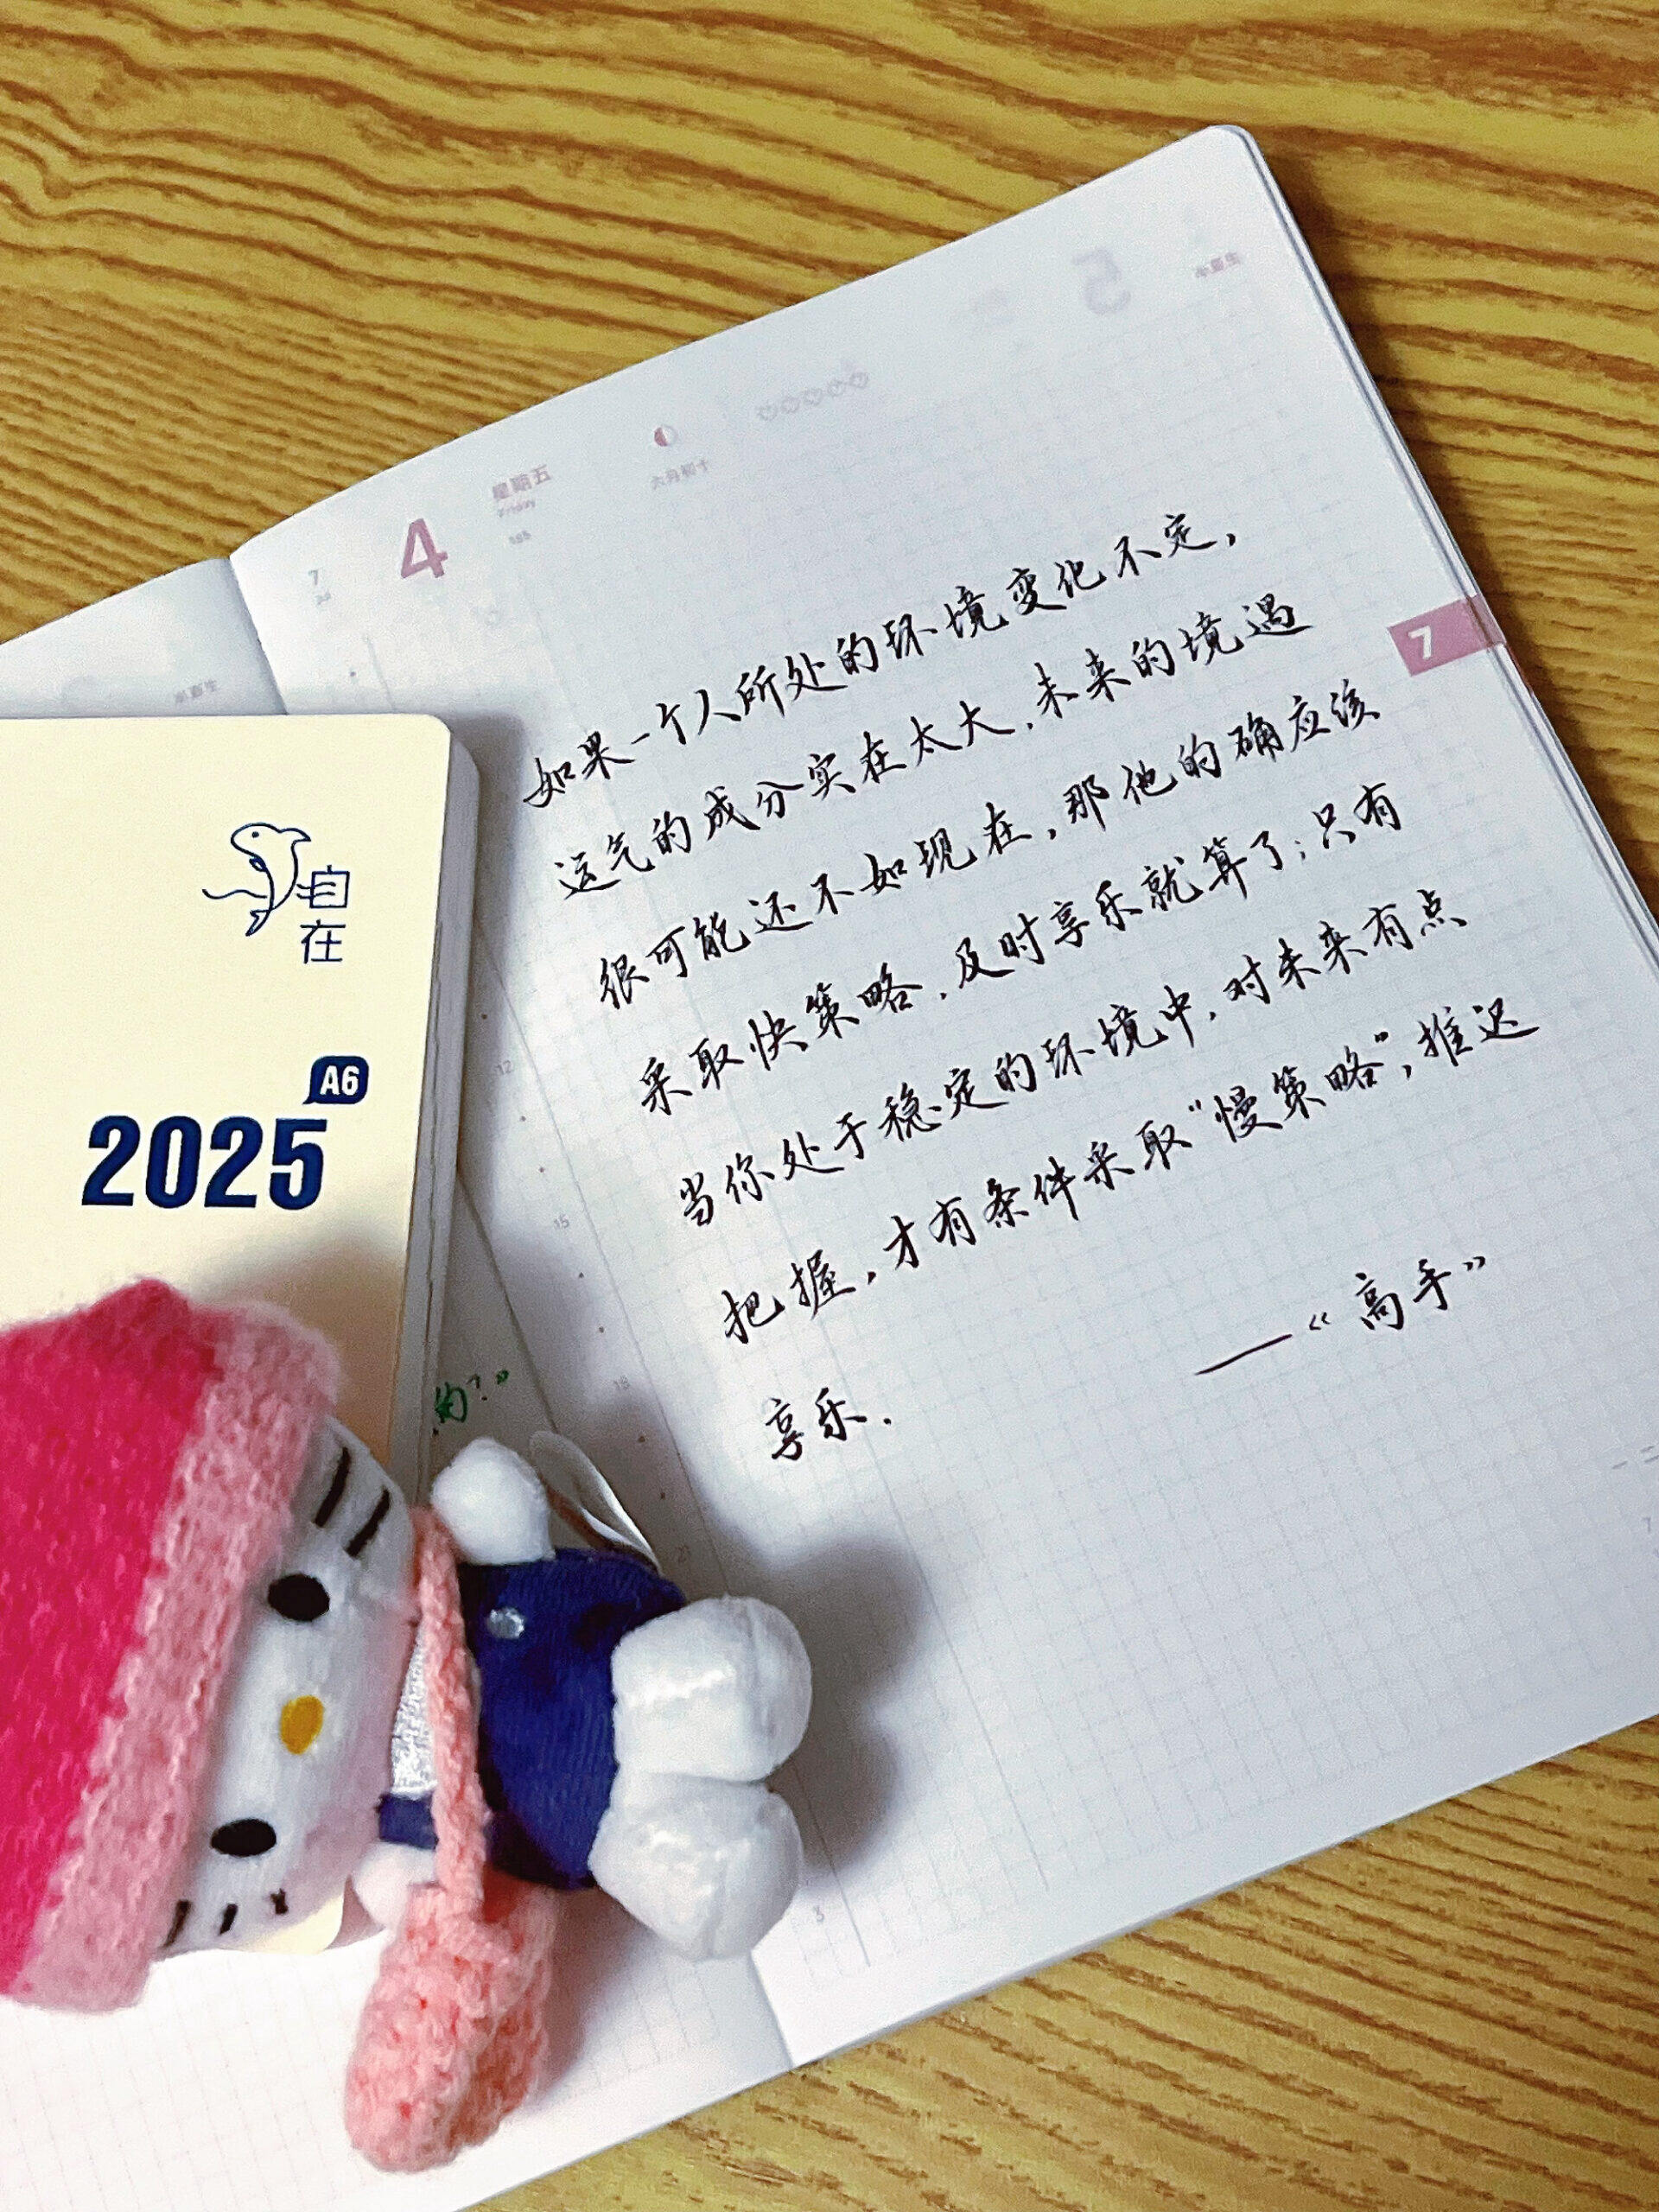 5
半夏生
4
星期五
Friday
185
7
六月初十
半夏生
7
如果一个人所处的环境变化不定，
运气的成分实在太大，未来的境遇
很可能还不如现在，那他的确应该
采取快策略，及时享乐就算了；只有
当你处于稳定的环境中，对未来有点
把握，才有条件采取“慢策略”，推迟
享乐．
——《高手》
自在
A6
2025
的？”
12
15
18
21
3